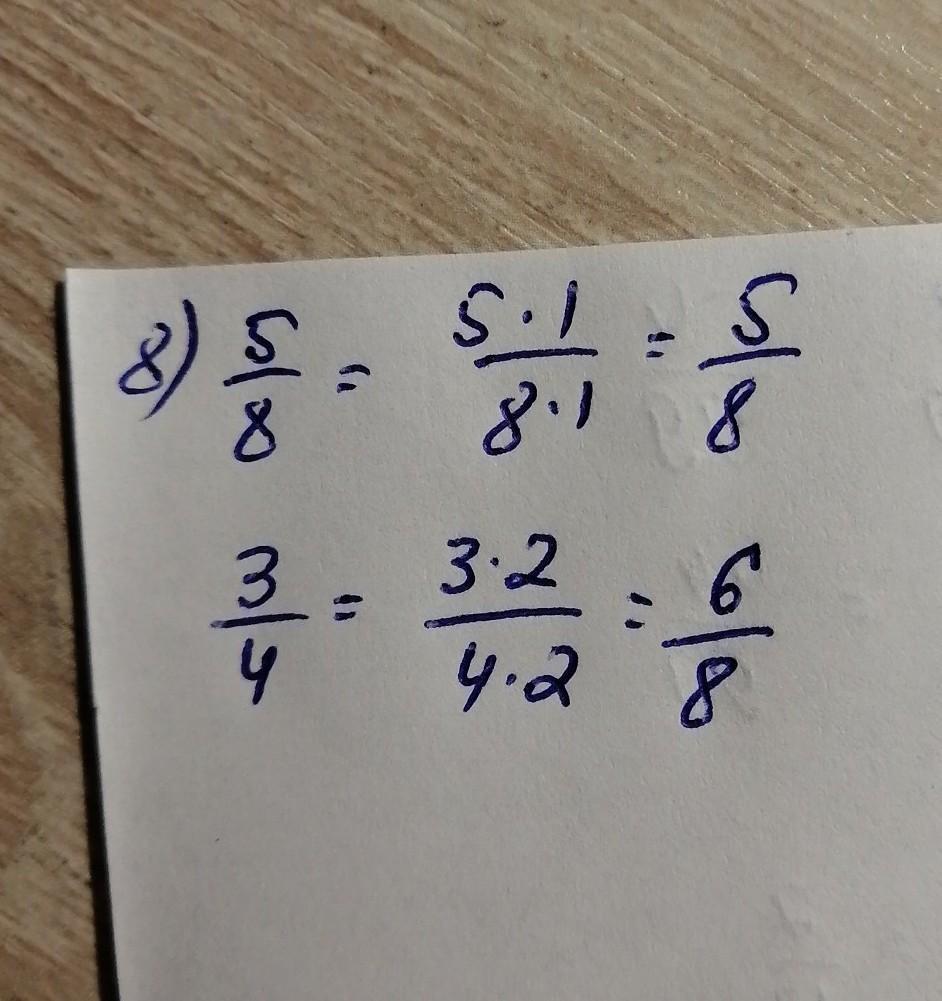 8) 5/8 = 5·1/8·1 = 5/8
3/4 = 3·2/4·2 = 6/8